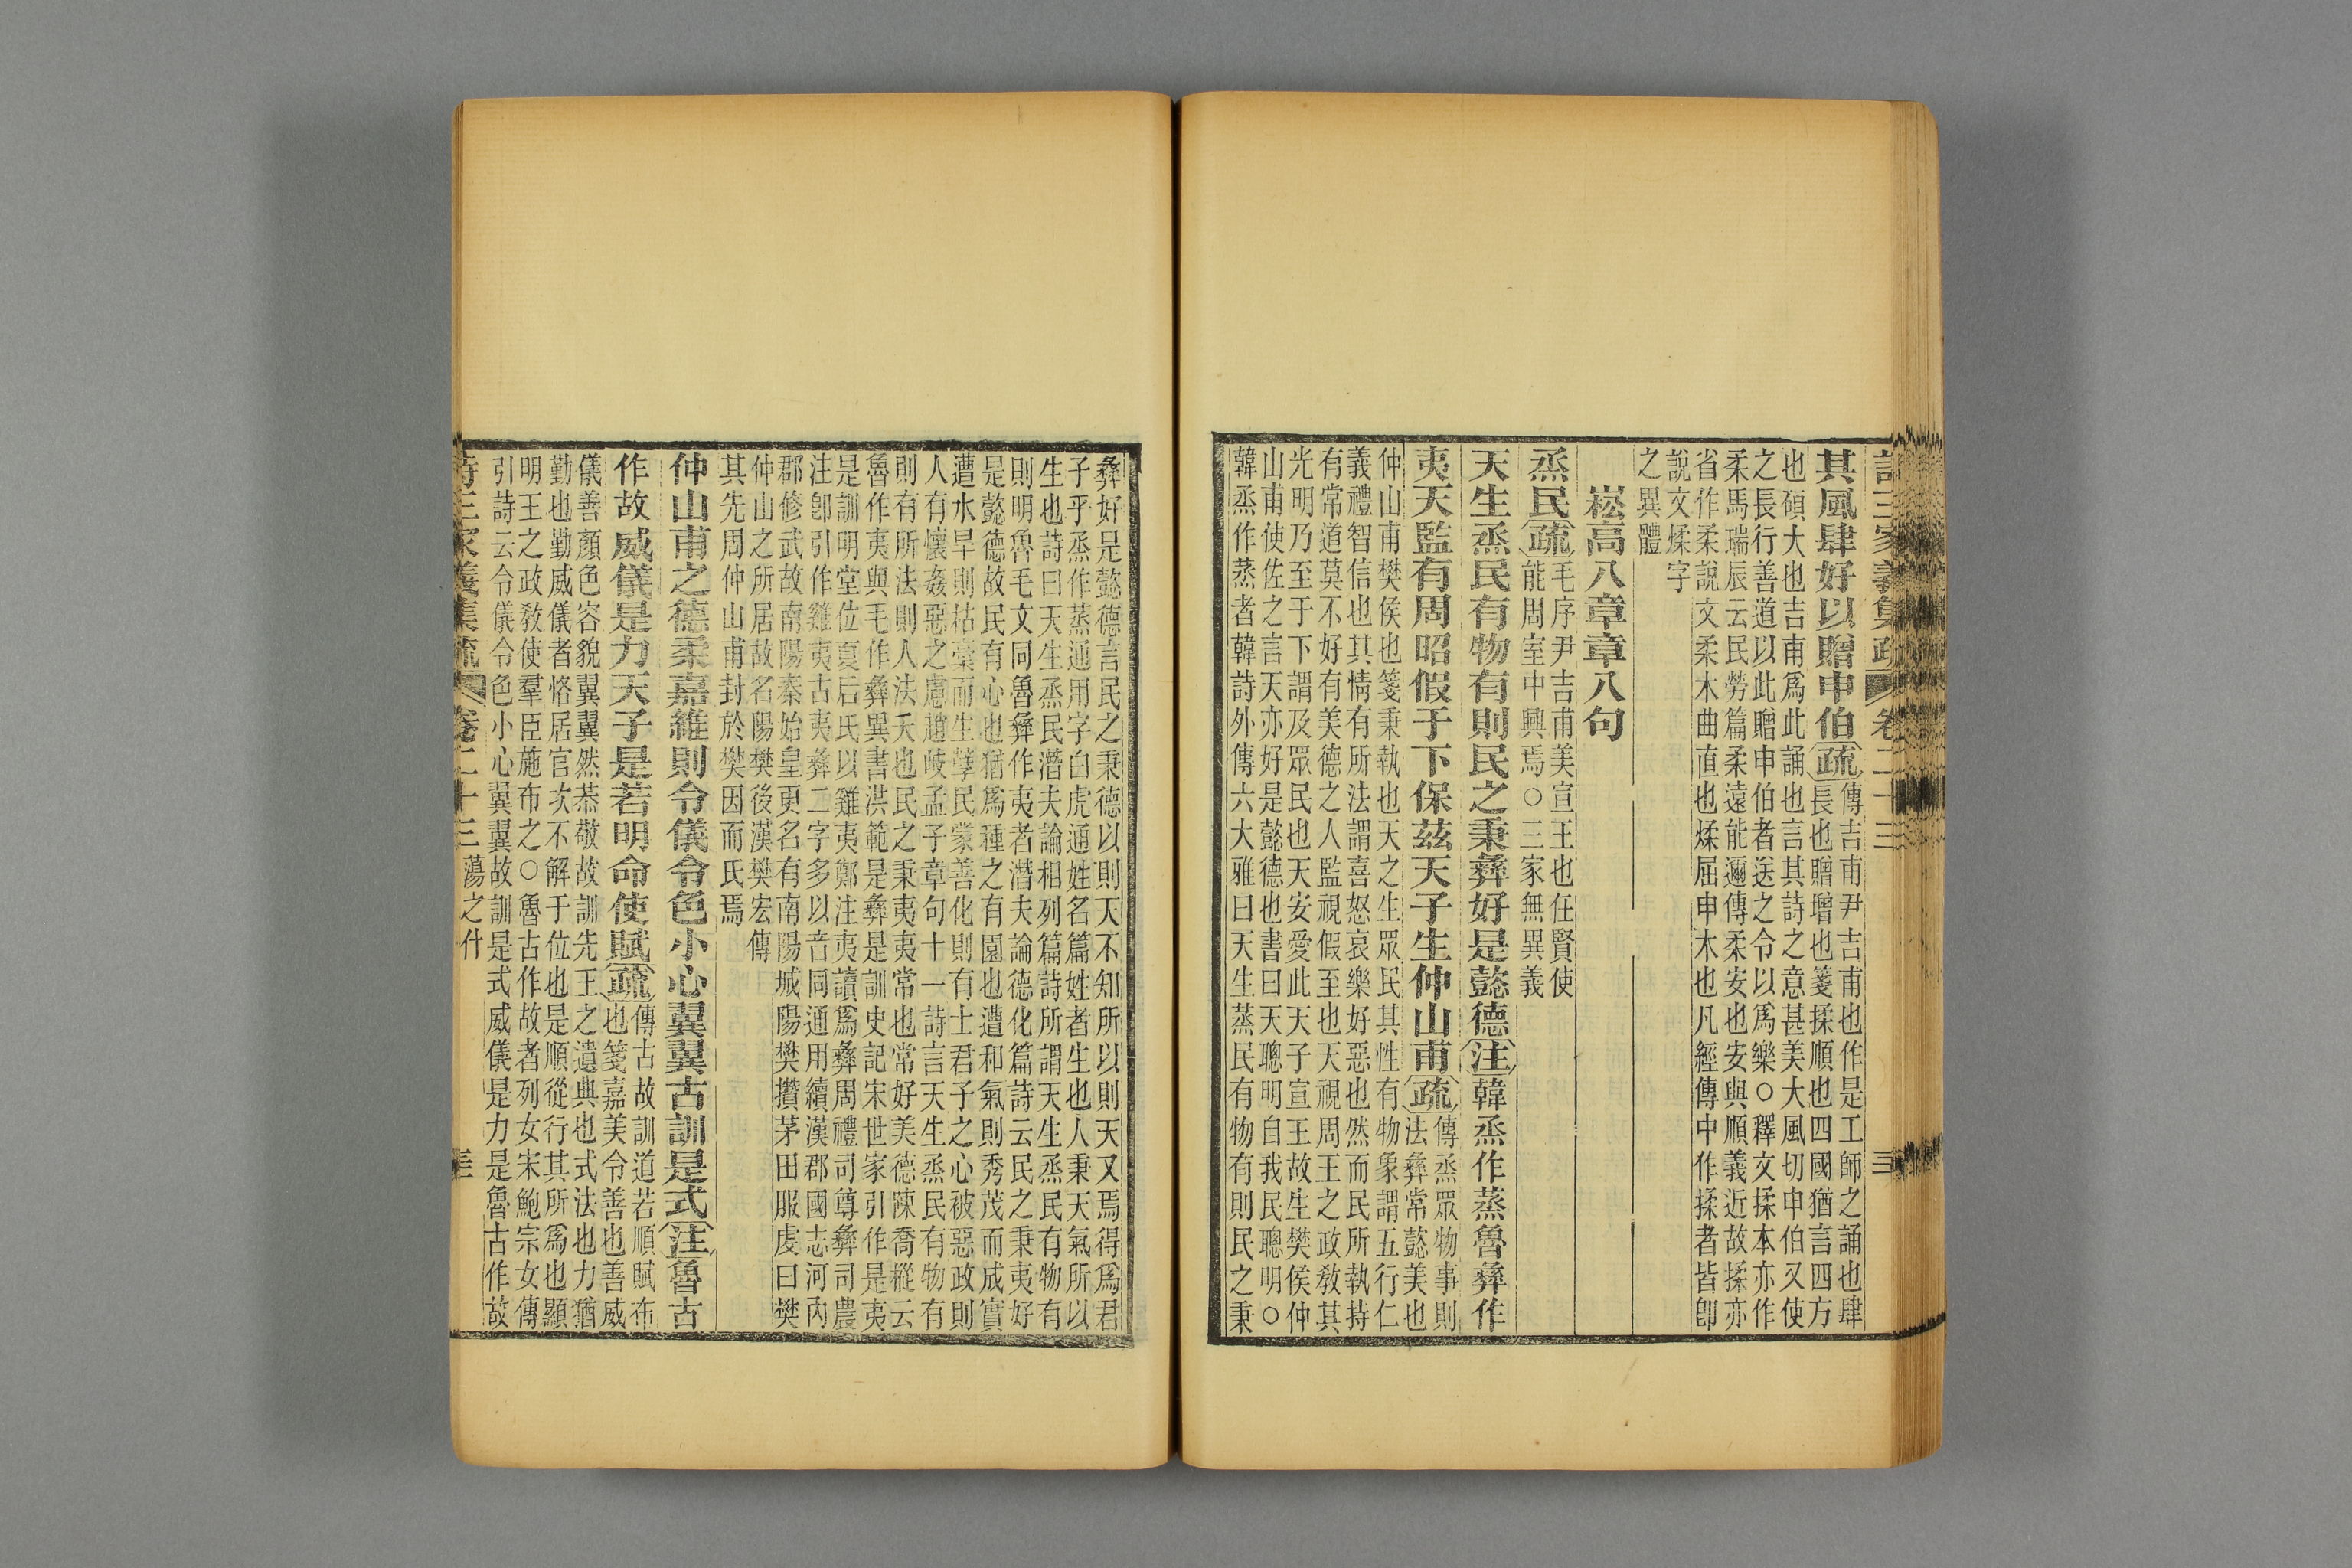 詩三家義集疏 卷二十三
其風肆好以贈申伯疏
傳吉甫尹吉甫也作是工師之誦也肆
長也贈增也箋揉順也四國猶言四方
也碩大也吉甫爲此誦也言其詩之意甚美大風切申伯又使
之長行善道以此贈申伯者送之令以爲樂○釋文揉本亦作
柔馬瑞辰云民勞篇柔遠能邇傳柔安也安與順義近故揉亦
省作柔說文柔木曲直也煣屈申木也凡經傳中作揉者皆卽
說文煣字
之異體
崧高八章章八句
烝民疏
毛序尹吉甫美宣王也任賢使
能周室中興焉○三家無異義
天生烝民有物有則民之秉彝好是懿德注韓烝作蒸魯彝作
夷天監有周昭假于下保茲天子生仲山甫疏
傳烝眾物事則
法彝常懿美也
仲山甫樊侯也箋秉執也天之生眾民其性有物象謂五行仁
義禮智信也其情有所法謂喜怒哀樂好惡也然而民所執持
有常道莫不好有美德之人監視假至也天視周王之政教其
光明乃至于下謂及眾民也天安愛此天子宣王故生樊侯仲
山甫使佐之言天亦好是懿德也書曰天聰明自我民聰明○
韓烝作蒸者韓詩外傳六大雅曰天生蒸民有物有則民之秉
彝好是懿德言民之秉德以則天不知所以則天又焉得爲君
子乎烝作蒸通用字白虎通姓名篇姓者生也人秉天氣所以
生也詩曰天生烝民潛夫論相列篇詩所謂天生烝民有物有
則明魯毛文同魯彝作夷者潛夫論德化篇詩云民之秉夷好
是懿德故民有心也猶爲種之有園也遭和氣則秀茂而成實
遭水旱則枯槁而生孽民蒙善化則有士君子之心被惡政則
人有懷姦惡之慮趙岐孟子章句十一詩言天生烝民有物有
則有所法則人法天也民之秉夷夷常也常好美德陳喬樅云
魯作夷與毛作彝異書洪範是彝是訓史記宋世家引作是夷
是訓明堂位夏后氏以雞夷鄭注夷讀爲彝周禮司尊彝司農
注卽引作雞夷古夷彝二字多以音同通用續漢郡國志河內
郡修武故南陽秦始皇更名有南陽城陽樊攢茅田服虔曰樊
仲山之所居故名陽樊後漢樊宏傳
其先周仲山甫封於樊因而氏焉
仲山甫之德柔嘉維則令儀令色小心翼翼古訓是式注魯古
作故威儀是力天子是若明命使賦疏
傳古故訓道若順賦布
也箋嘉美令善也善威
儀善顏色容貌翼翼然恭敬故訓先王之遺典也式法也力猶
勤也勤威儀者恪居官次不解于位也是順從行其所爲也顯
明王之政教使羣臣施布之○魯古作故者列女宋鮑宗女傳
引詩云令儀令色小心翼翼故訓是式威儀是力是魯古作故
詩三家義集疏 卷二十三 蕩之什